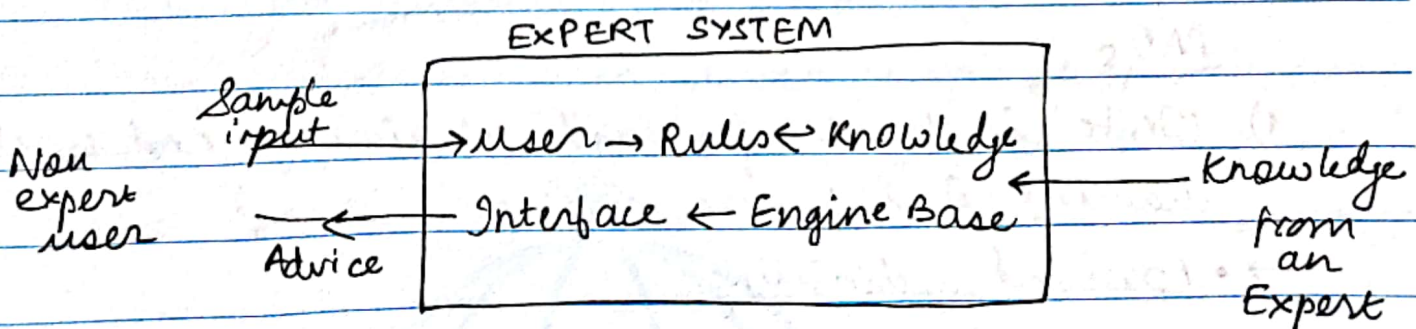 EXPERT SYSTEM
Sample
input
Non
expert
user
→ User → Rules ← Knowledge
Interface ← Engine Base
Advice
Knowledge
from
an
Expert